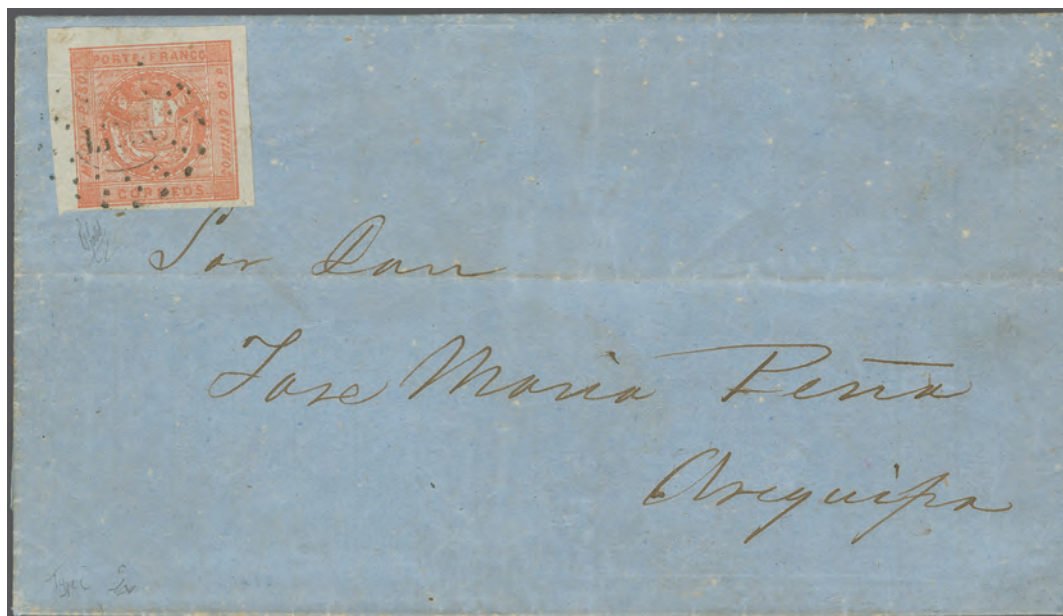 PORTE FRANCO
o 50 CENTIMOS
CORREOS.
Sor Don
Jose Maria Peña
Arequipa